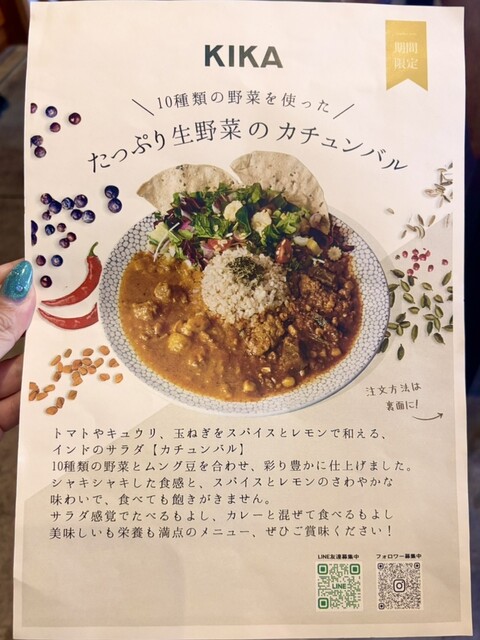 KIKA
期間
限定
10種類の野菜を使った
たっぷり生野菜のカチュンバル
注文方法は
裏面に!
トマトやキュウリ、玉ねぎをスパイスとレモンで和える、
インドのサラダ【カチュンバル】
10種類の野菜とムング豆を合わせ、彩り豊かに仕上げました。
シャキシャキした食感と、スパイスとレモンのさわやかな
味わいで、食べても飽きがきません。
サラダ感覚でたべるもよし、カレーと混ぜて食べるもよし
美味しいも栄養も満点のメニュー、ぜひご賞味ください!
LINE友達募集中
フォロワー募集中
LINE